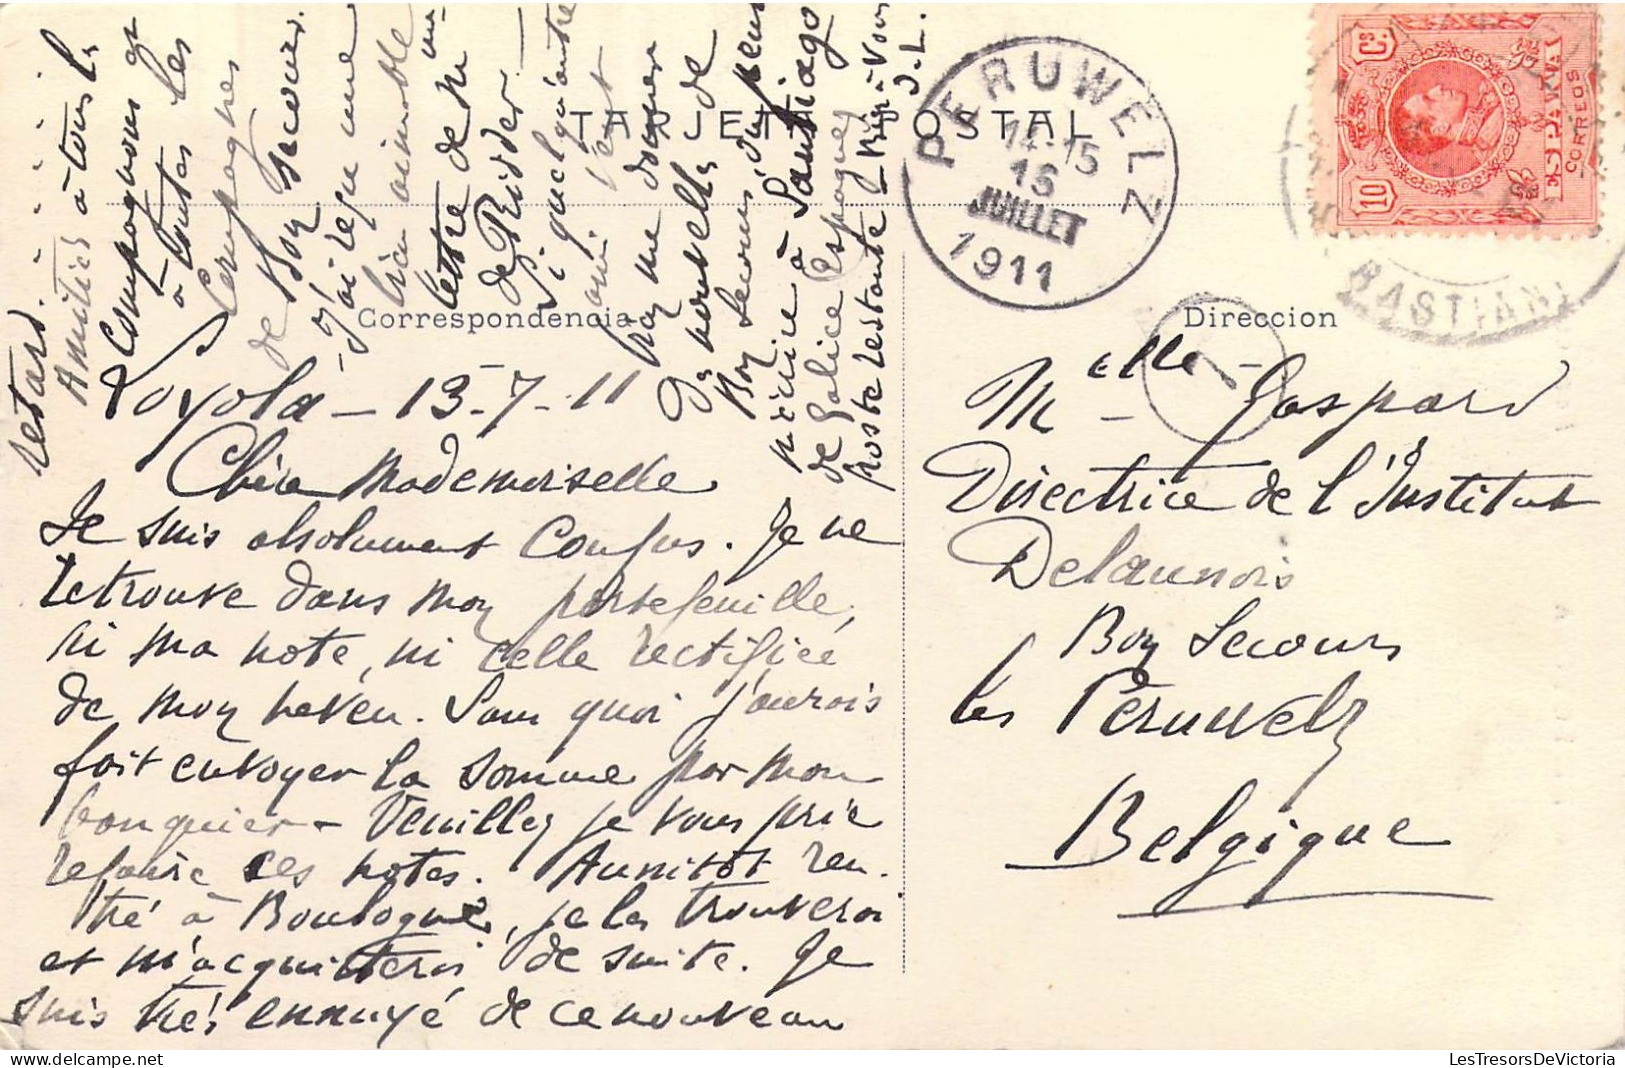 TARJETA POSTAL
Correspondencia
Direccion
Loyola - 13-7-11
Chère Mademoiselle
Je suis absolument confus. Je ne
retrouve dans mon portefeuille,
ni ma note, ni celle rectifiée
de mon neveu. Sans quoi j'aurois
fait envoyer la somme par mon
banquier - Veuillez je vous prie
refaire ces notes. Aussitôt ren-
tré à Boulogne, je les trouverai
et m'acquitterai de suite. Je
suis très ennuyé de ce nouveau
retard.
Amitiés à tous les
compagnons et
à toutes les
compagnes
de Bon Secours.
J'ai reçu une
bien aimable
lettre de Mme
de Ridder.
Si quelqu'autre
veut
me donner
des nouvelles de
Bon Secours,
à Santiago
de Galice Espagne,
poste restante
J. L.
Melle Gaspard
Directrice de l'Institut
Delaunois
Bon Secours
les Péruwelz
Belgique
PERUWELZ
14-15
16
JUILLET
1911
1
10 Cs
ESPAÑA
CORREOS
10
BASTIAN
LesTresorsDeVictoria